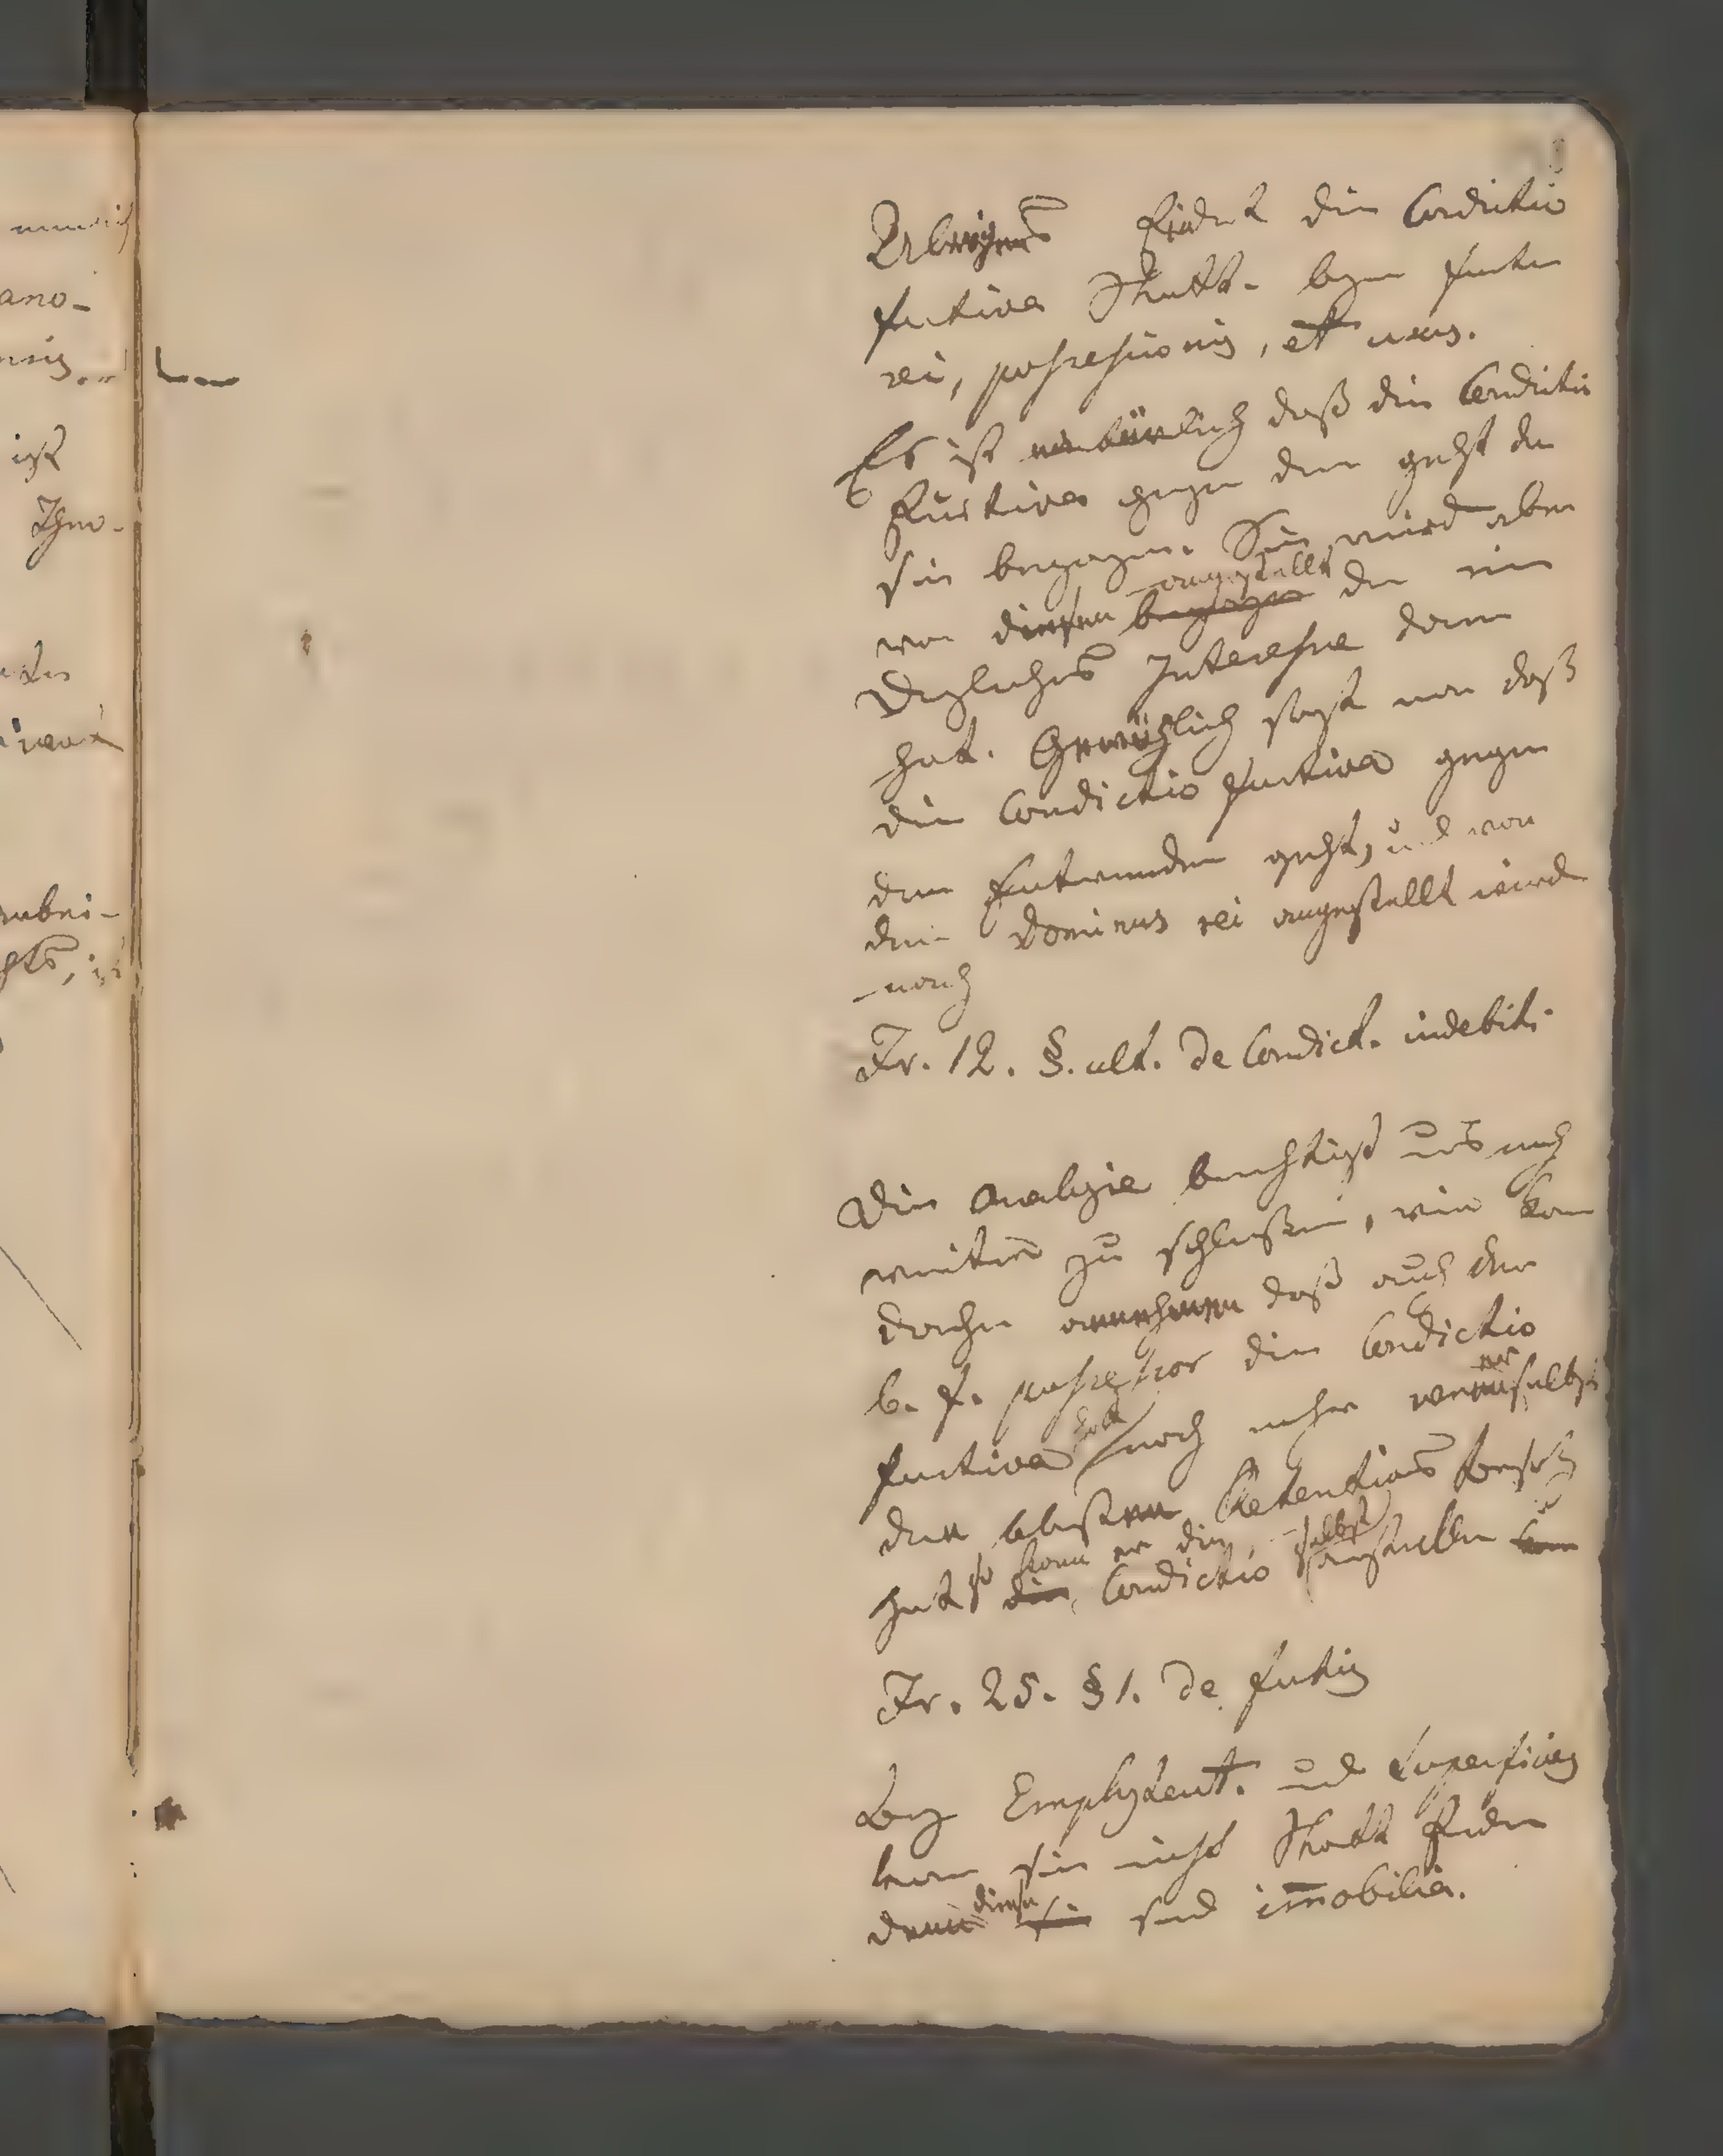 Ubrigens findet die Condictio
furtiva Statt. beym furtum
rei, possessionis, et usus.
Es ist natürlich daß die Condictio
furtiva gegen den geht der
sie begangen. Sie wird aber
von diesem angestellt begangen der ein
dergleichen Interesse daran
hat. Gewöhlich sagt man daß
die Condictio furtiva gegen
den Entwender geht, und von
dem Dominus rei angestellt wird
nach
Fr. 12. §. ult. de Condict. indebit.
Die Analogie berechtigt uns noch
weiter zu schließen, wir kön
daher annehmen daß auch der
b. f. possessor die Condictio
furtiva hat noch mehr wenn er selbst
den bloßen Retentions besitz
hat so kann er die die Condictio selbst anstellen
Fr. 25. §1. de furtis
Bey Emphyteut. und Superficies
kann sie nicht Statt finden
denn diese sie sind im̄obilia.